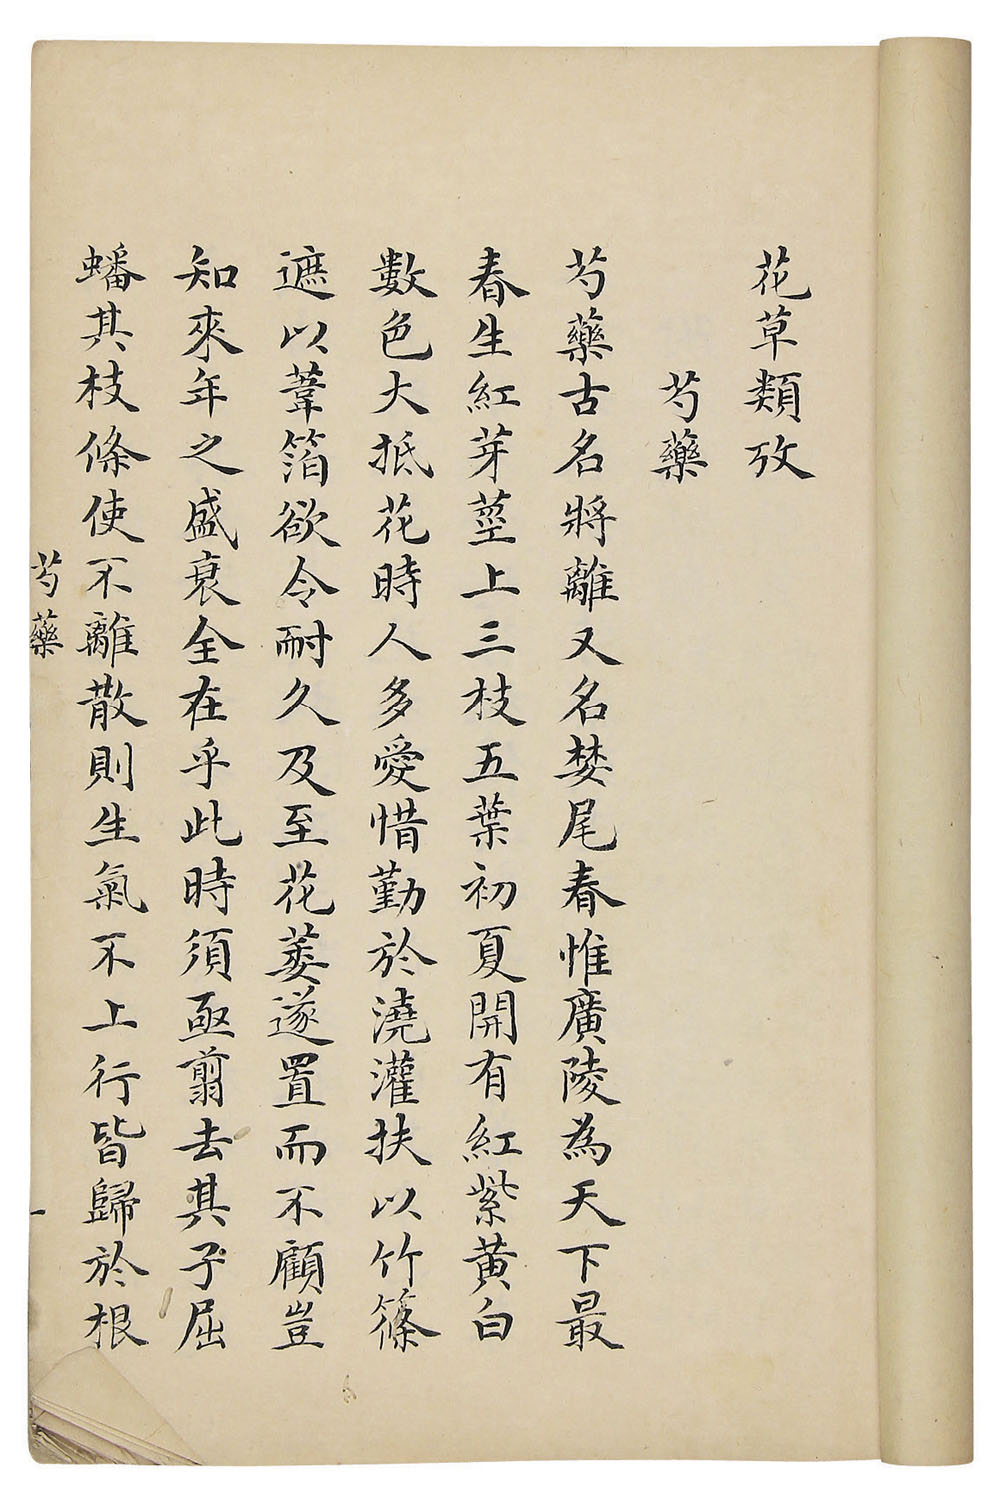 花草類攷
芍藥
芍藥古名將離又名婪尾春惟廣陵為天下最
春生紅芽莖上三枝五葉初夏開有紅紫黃白
數色大抵花時人多愛惜勤於澆灌扶以竹篠
遮以葦箔欲令耐久及至花萎遂置而不顧豈
知來年之盛衰全在乎此時須亟翦去其子屈
蟠其枝條使不離散則生氣不上行皆歸於根
芍藥
一